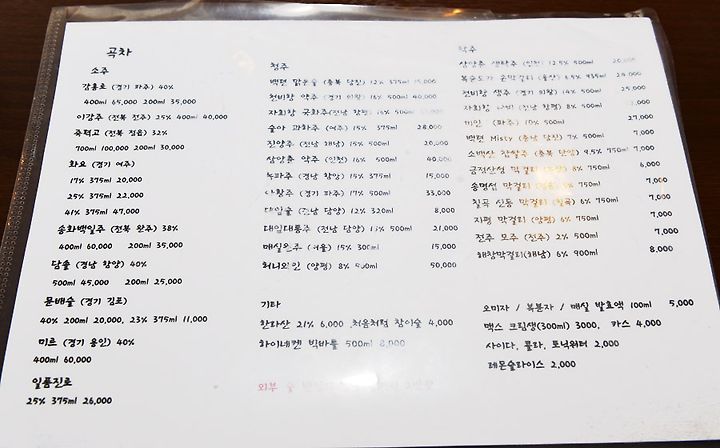 곡차
소주
감홍로 (경기 파주) 40%
400ml 65,000 200ml 35,000
이강주 (전북 전주) 25% 400ml 40,000
죽력고 (전북 정읍) 32%
700ml 100,000 200ml 30,000
화요 (경기 여주)
17% 375ml 20,000
25% 375ml 22,000
41% 375ml 47,000
송화백일주 (전북 완주) 38%
400ml 60,000 200ml 35,000
담솔 (경남 함양) 40%
500ml 45,000 200ml 25,000
문배술 (경기 김포)
40% 200ml 20,000, 23% 375ml 11,000
미르 (경기 용인) 40%
400ml 60,000
일품진로
25% 375ml 26,000
청주
백련 맑은술 (충북 당진) 12% 375ml
천비향 약주 (경기 16% 500ml 40,000
자희향 국화주(전남 함평)
술아 과하주 (여주) 15% 375ml 28,000
진양주 (전남 해남) 15% 500ml 20,000
삼양춘 약주 (인천) 16% 500ml 40,000
녹파주 (경남 함양) 15% 375ml 15,000
아황주 (경기 파주) 17% 500ml 33,000
대잎술 (전남 담양) 12% 320ml 8,000
대잎대통주 (전남 담양) 15% 500ml 21,000
매실원주 (서울) 15% 300ml 15,000
허니와인 (양평) 8% 500ml 50,000
기타
한라산 21% 6,000 처음처럼 참이슬 4,000
하이네켄 빅바틀 500ml 8,000
외부 술
탁주
삼양춘 생탁주 (인천) 12.5% 500ml 20,000
복순도가 손막걸리 (울산) 6.5% 935ml 24,000
천비향 생주 (경기 14% 500ml 25,000
자희향 나비 (전남 함평) 8% 500ml
미인 (파주) 10% 500ml 27,000
백련 Misty (충남 당진) 7% 500ml 7,000
소백산 찹쌀주 (충북 단양) 9.5% 750ml 7,000
금정산성 막걸리 8% 750ml 6,000
송명섭 막걸리 750ml 7,000
칠곡 신동 막걸리 (칠곡) 6% 750ml 7,000
지평 막걸리 (양평) 6% 750ml 7,000
전주 모주 (전주) 2% 500ml 7,000
해창막걸리(해남) 6% 900ml 8,000
오미자 / 복분자 / 매실 발효액 100ml 5,000
맥스 크림생(300ml) 3000, 카스 4,000
사이다, 콜라, 토닉워터 2,000
레몬슬라이스 2,000